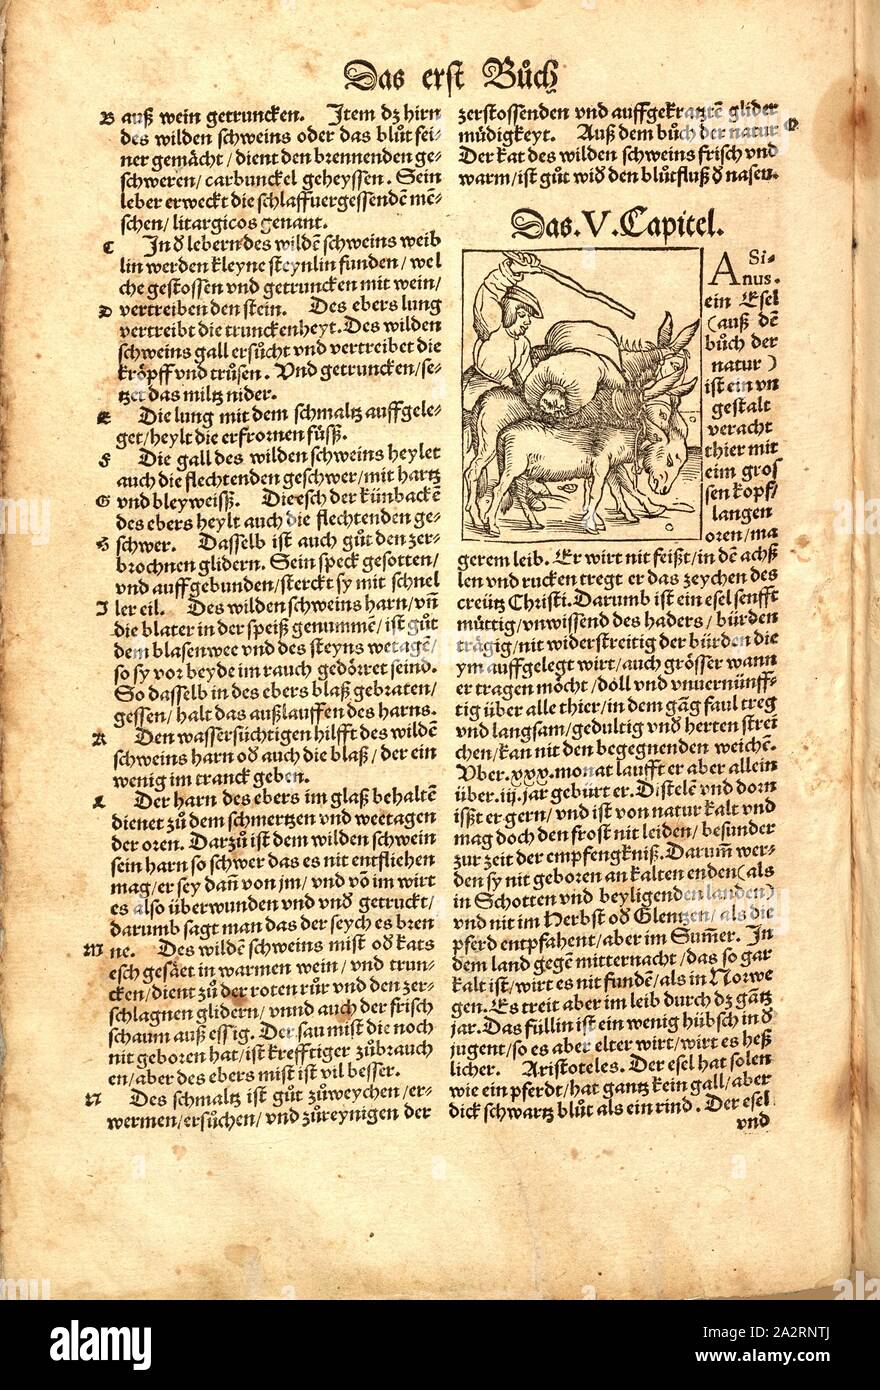 Das erst Bůch
B auß wein getruncken. Item dz hirn
des wilden schweins oder das blůt sei-
ner gemächt / dient den brennenden ge-
schweren / carbunckel geheyssen. Sein
leber erweckt die schlaffuergessenden mē-
schen / litargicos genant.
C In ď lebern des wildē schweins weib
lin werden kleyne steynlin funden / wel
che gestossen vnd getruncken mit wein /
D vertreiben den stein. Des ebers lung
vertreibt die trunckenheyt. Des wilden
schweins gall ersůcht vnd vertreibet die
kröpff vnd trůsen. Vnd getruncken / se-
tzet das miltz nider.
E Die lung mit dem schmaltz auffgele-
get / heylt die erfrornen füß.
F Die gall des wilden schweins heylet
auch die flechtenden geschwer / mit hartz
G vnd bleyweiß. Die esch der künbackē
des ebers heylt auch die flechtenden ge-
H schwer. Dasselb ist auch gůt den zer-
brochnen glidern. Sein speck gesotten /
vnd auffgebunden / sterckt sy mit schnel
I ler eil. Des wilden schweins harn / vñ
die blater in der speiß genummē / ist gůt
dem blasenwee vnd des steyns wetagē /
so sy vor beyde im rauch gedörret seind.
So dasselb in des ebers blaß gebraten /
gessen / halt das außlauffen des harns.
K Den wassersüchtigen hilfft des wildē
schweins harn oď auch die blaß / der ein
wenig im tranck geben.
L Der harn des ebers im glaß behaltē
dienet zů dem schmertzen vnd weetagen
der oren. Darzů ist dem wilden schwein
sein harn so schwer das es nit entfliehen
mag / er sey dañ von jm / vnd võ im wirt
es also überwunden vnd vnď getruckt /
darumb sagt man das der seych es bren
M ne. Des wildē schweins mist oď kats
esch gesäet in warmen wein / vnd trun-
cken / dient zů der roten růr vnd den zer-
schlagnen glidern / vnnd auch der frisch
schaum auß essig. Der sau mist die noch
nit geboren hat / ist krefftiger zůbrauch
en / aber des ebers mist ist vil besser.
N Des schmaltz ist gůt zůweychen / er-
wermen / ersůchen / vnd zůreynigen der
zerstossenden vnd auffgekratztē glider
můdigkeyt. Auß dem bůch der natur O
Der kat des wilden schweins frisch vnd
warm / ist gůt wiď den blůtfluß ď nasen.
Das .V. Capitel.
ASi-
nus.
ein Esel
(auß dē
bůch der
natur)
ist ein vn
gestalt
veracht
thier mit
eim gros
sen kopf /
langen
oren / ma
gerem leib. Er wirt nit feißt / in dē achß
len vnd rucken tregt er das zeychen des
creütz Christi. Darumb ist ein esel senfft
můttig / vnwissend des haders / bürden
trägig / nit widerstreitig der bürden die
ym auffgelegt wirt / auch grösser wann
er tragen möcht / doll vnd vnuernünff-
tig über alle thier / in dem gäg faul treg
vnd langsam / gedultig vnď herten strei
chen / kan nit den begegnenden weichē.
Vber .xxx. monat laufft er aber allein
über .iij. jar gebürt er. Distelē vnd dorn
ißt er gern / vnd ist von natur kalt vnd
mag doch den frost nit leiden / besunder
zur zeit der empfengkniß. Darum̃ wer-
den sy nit geboren an kalten enden (als
in Schotten vnd beyligenden landen)
vnd nit im Herbst oď Glentzen / als die
pferd entpfahent / aber im Sum̃er. In
dem land gegē mitternacht / das so gar
kalt ist / wirt es nit fundē / als in Norwe
gen. Es treit aber im leib durch dz gätz
jar. Das füllin ist ein wenig hübsch in ď
jugent / so es aber elter wirt / wirt es heß
licher. Aristoteles. Der esel hat solen
wie ein pferdt / hat gantz kein gall / aber
dick schwartz blůt als ein rind. Der esel
vnd
alamy
Image ID: 2A2RNTJ
www.alamy.com